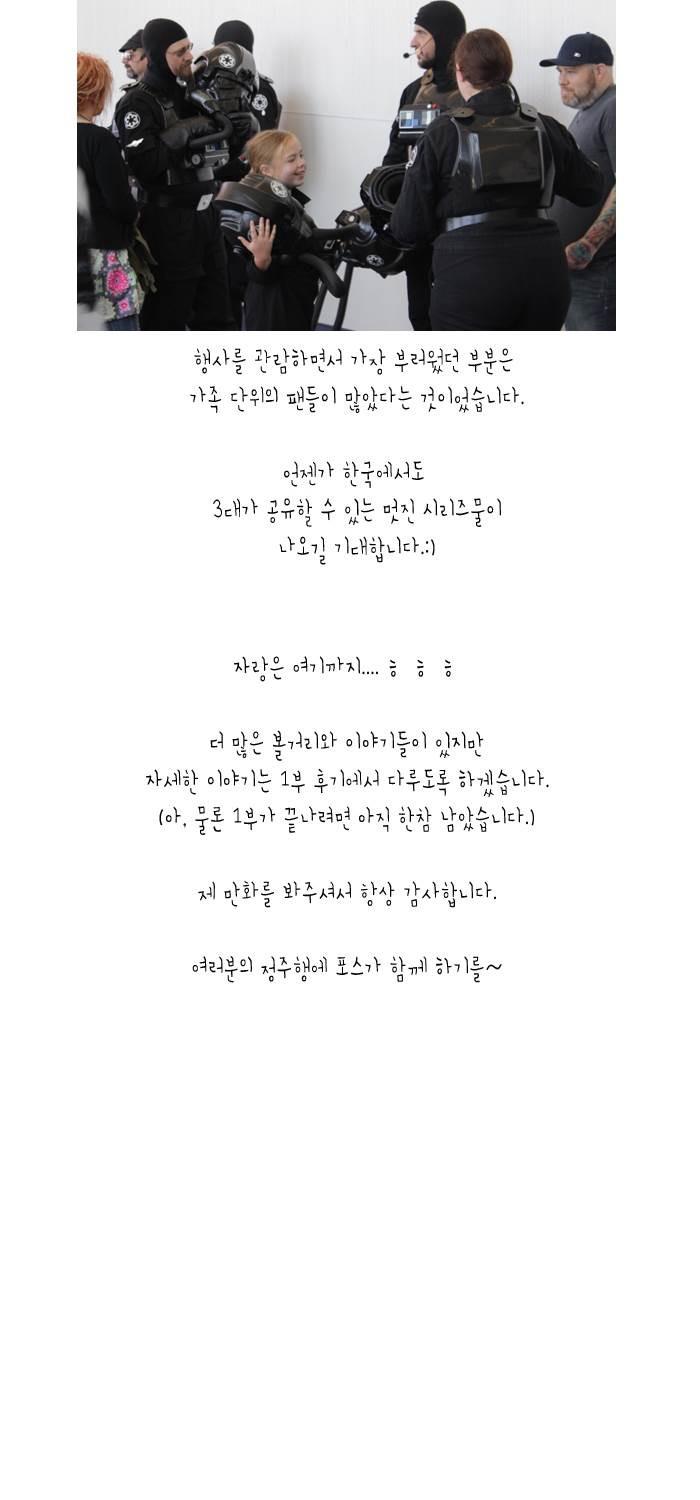 행사를 관람하면서 가장 부러웠던 부분은
가족 단위의 팬들이 많았다는 것이었습니다.
언젠가 한국에서도
3대가 공유할 수 있는 멋진 시리즈물이
나오길 기대합니다.:)
자랑은 여기까지.... ㅎ ㅎ ㅎ
더 많은 볼거리와 이야기들이 있지만
자세한 이야기는 1부 후기에서 다루도록 하겠습니다.
(아, 물론 1부가 끝나려면 아직 한참 남았습니다.)
제 만화를 봐주셔서 항상 감사합니다.
여러분의 정주행에 포스가 함께 하기를~